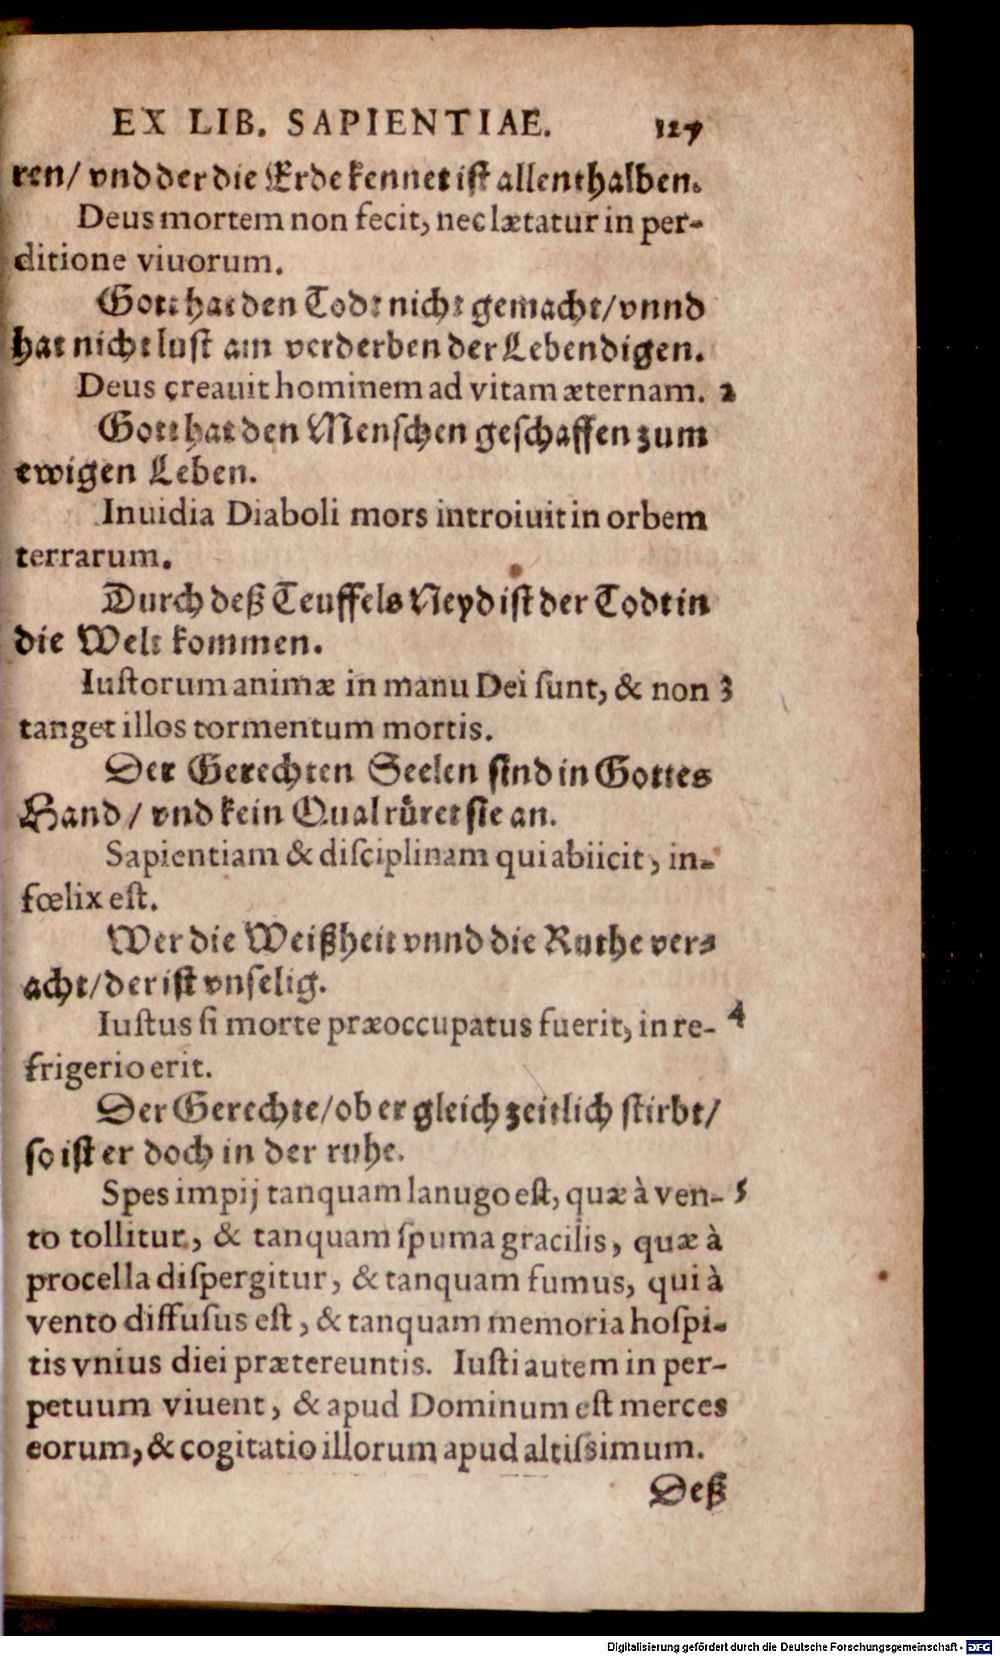 EX LIB. SAPIENTIAE. 127
ren/ vnd der die Erde kennet ist allenthalben.
Deus mortem non fecit, nec lætatur in per-
ditione viuorum.
Gott hat den Todt nicht gemacht/ vnnd
hat nicht lust am verderben der Lebendigen.
Deus creauit hominem ad vitam æternam. 2
Gott hat den Menschen geschaffen zum
ewigen Leben.
Inuidia Diaboli mors introiuit in orbem
terrarum.
Durch deß Teuffels Neyd ist der Todt in
die Welt kommen.
Iustorum animæ in manu Dei sunt, & non 3
tanget illos tormentum mortis.
Der Gerechten Seelen sind in Gottes
Hand / vnd kein Qual rüret sie an.
Sapientiam & disciplinam qui abiicit, in-
fœlix est.
Wer die Weißheit vnnd die Ruthe ver-
acht/ der ist vnselig.
Iustus si morte præoccupatus fuerit, in re- 4
frigerio erit.
Der Gerechte/ ob er gleich zeitlich stirbt/
so ist er doch in der ruhe.
Spes impij tanquam lanugo est, quæ à ven- 5
to tollitur, & tanquam spuma gracilis, quæ à
procella dispergitur, & tanquam fumus, qui à
vento diffusus est, & tanquam memoria hospi-
tis vnius diei prætereuntis. Iusti autem in per-
petuum viuent, & apud Dominum est merces
eorum, & cogitatio illorum apud altissimum.
Deß
Digitalisierung gefördert durch die Deutsche Forschungsgemeinschaft - DFG